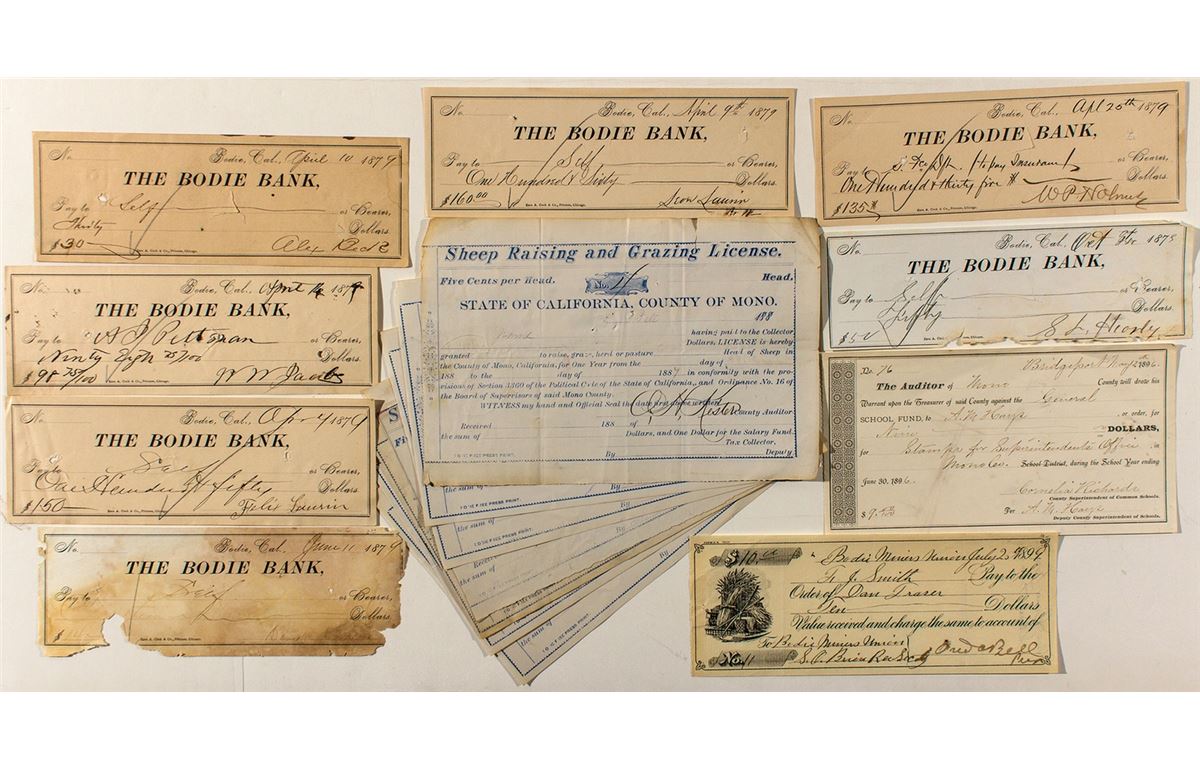 No.
Bodie, Cal., April 10 1879
THE BODIE BANK,
Pay to Self or Bearer,
Thirty Dollars.
$30
No.
Bodie, Cal., April 14 1879
THE BODIE BANK,
Pay to or Bearer,
Ninety Eight 75/100 Dollars.
$98 75/100
No.
Bodie, Cal., Apr 1879
THE BODIE BANK,
Pay to Self or Bearer,
One Hundred & Fifty Dollars.
$150 Felix Laurin
No.
Bodie, Cal., June 11 1879
THE BODIE BANK,
Pay to Self or Bearer,
Dollars.
$
No.
Bodie, Cal., April 9th 1879
THE BODIE BANK,
Pay to Self or Bearer,
One Hundred & Sixty Dollars.
$160.00 Leon Laurin
Sheep Raising and Grazing License.
Five Cents per Head. No. Head.
STATE OF CALIFORNIA, COUNTY OF MONO.
188
having paid to the Collector
Dollars, LICENSE is hereby
granted to raise, graze, herd or pasture Head of Sheep in
the County of Mono, California, for One Year from the day of
188 to the day of 1887 in conformity with the pro-
visions of Section 3309 of the Political Code of the State of California, and Ordinance No. 16 of
the Board of Supervisors of said Mono County.
WITNESS my hand and Official Seal the date first above written
County Auditor
Received 188 of
the sum of Dollars, and One Dollar for the Salary Fund.
Tax Collector,
By Deputy
the sum of
By
the sum of
By
Received
the sum of
the sum of
No.
Bodie, Cal., Apl 25th 1879
THE BODIE BANK,
Pay to or Bearer,
One Hundred & thirty five Dollars.
$135
No.
Bodie, Cal., Oct 1878
THE BODIE BANK,
Pay to Self or Bearer,
Fifty Dollars.
$50
No. 76 Bridgeport Nov 1896.
The Auditor of Mono County will draw his
Warrant upon the Treasurer of said County against the General
SCHOOL FUND, to A. M. Hays or order, for
Nine DOLLARS,
for Stamps for Superintendents Office in
Mono Co. School District, during the School Year ending
June 30, 1896.
Cornelia Richards
County Superintendent of Common Schools.
$9. Per A. M. Hays
Deputy County Superintendent of Schools.
$10.00 Bodie Miners Union July 2 1899
F. J. Smith Pay to the
Order of Dan Fraser
Ten Dollars
Value received and charge the same to account of
To Bodie Miners Union
No. 11